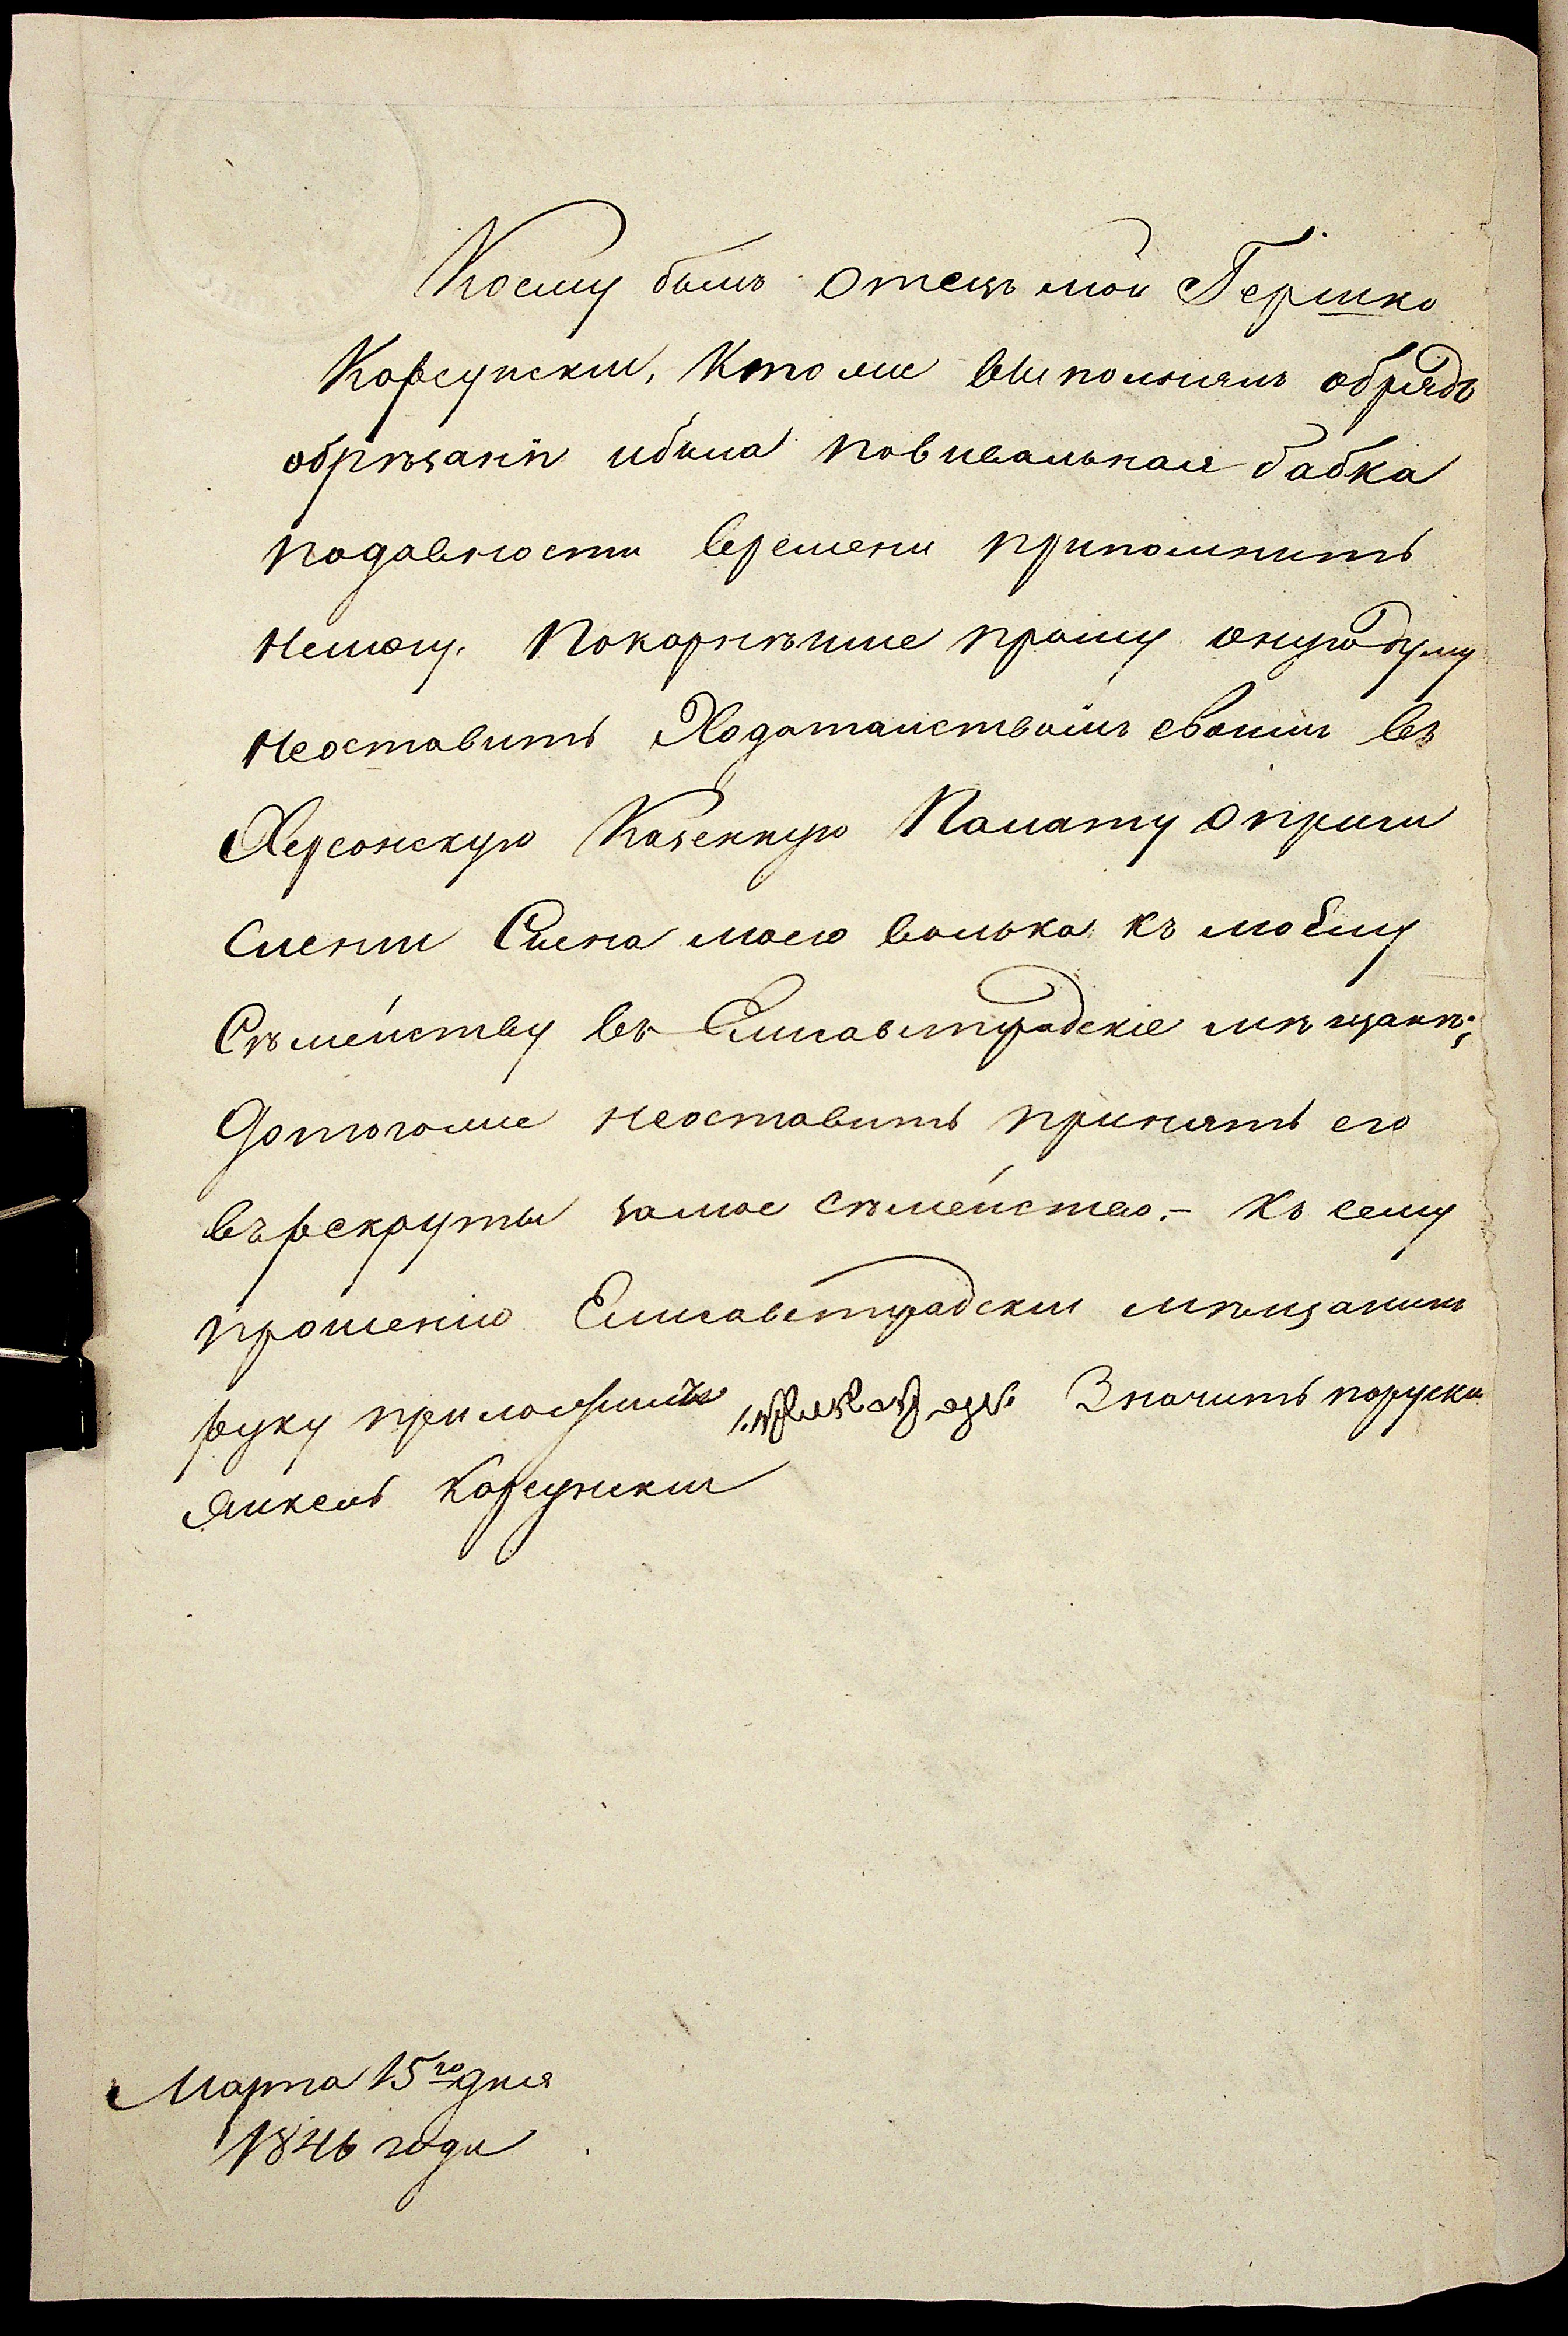 Коему былъ Отецъ мой Гершко
Корсунскій, Кто же выполнялъ обрядъ
обрѣзанія ибыла повивальная бабка
подавности времени припомнить
Немогу. Покорнѣише прошу онуюдуму
Неоставить Ходатаиствомъ своимъ въ
Херсонскую Казенную Палату Опричи
Сленіи Сына моего Волька къ моему
Сѣмейству въ Елисаветградскіе мѣщанѣ;
Дотогоже неоставить принять его
въ рекруты замое сѣмейство. - Къ сему
прошенію Елисаветградскіи мѣщанинъ
руку приложилъ Значить поруски
Янкель Корсунскіи
Марта 15го дня
1846 года